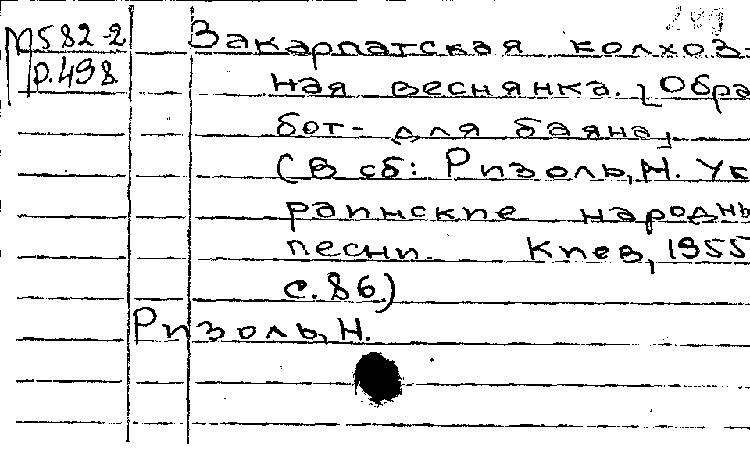 249
М582-2
р.498
Закарпатская колхоз-
ная веснянка. [Обра
бот- для баяна]
(В сб: Ризоль, Н. Ук
раинские народнь
песни. Киев, 1955
с.86)
Ризоль, Н.